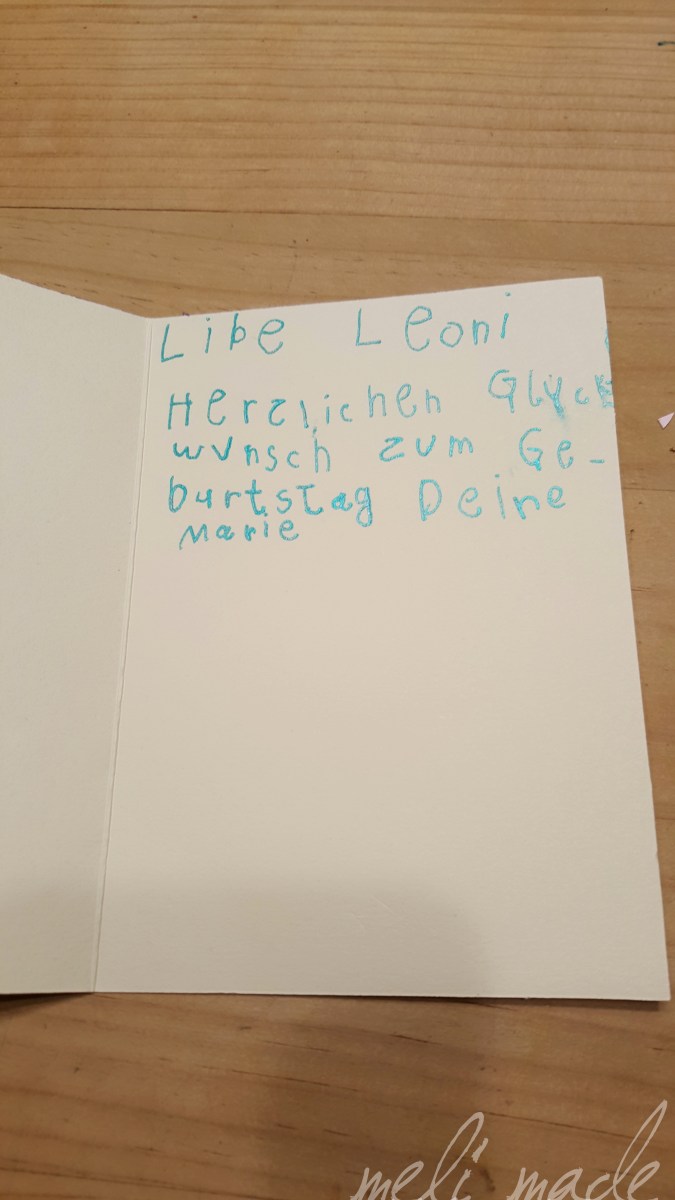 Libe Leoni
Herzlichen Glyck
wunsch zum Ge-
burtstag Deine
Marie
meli made